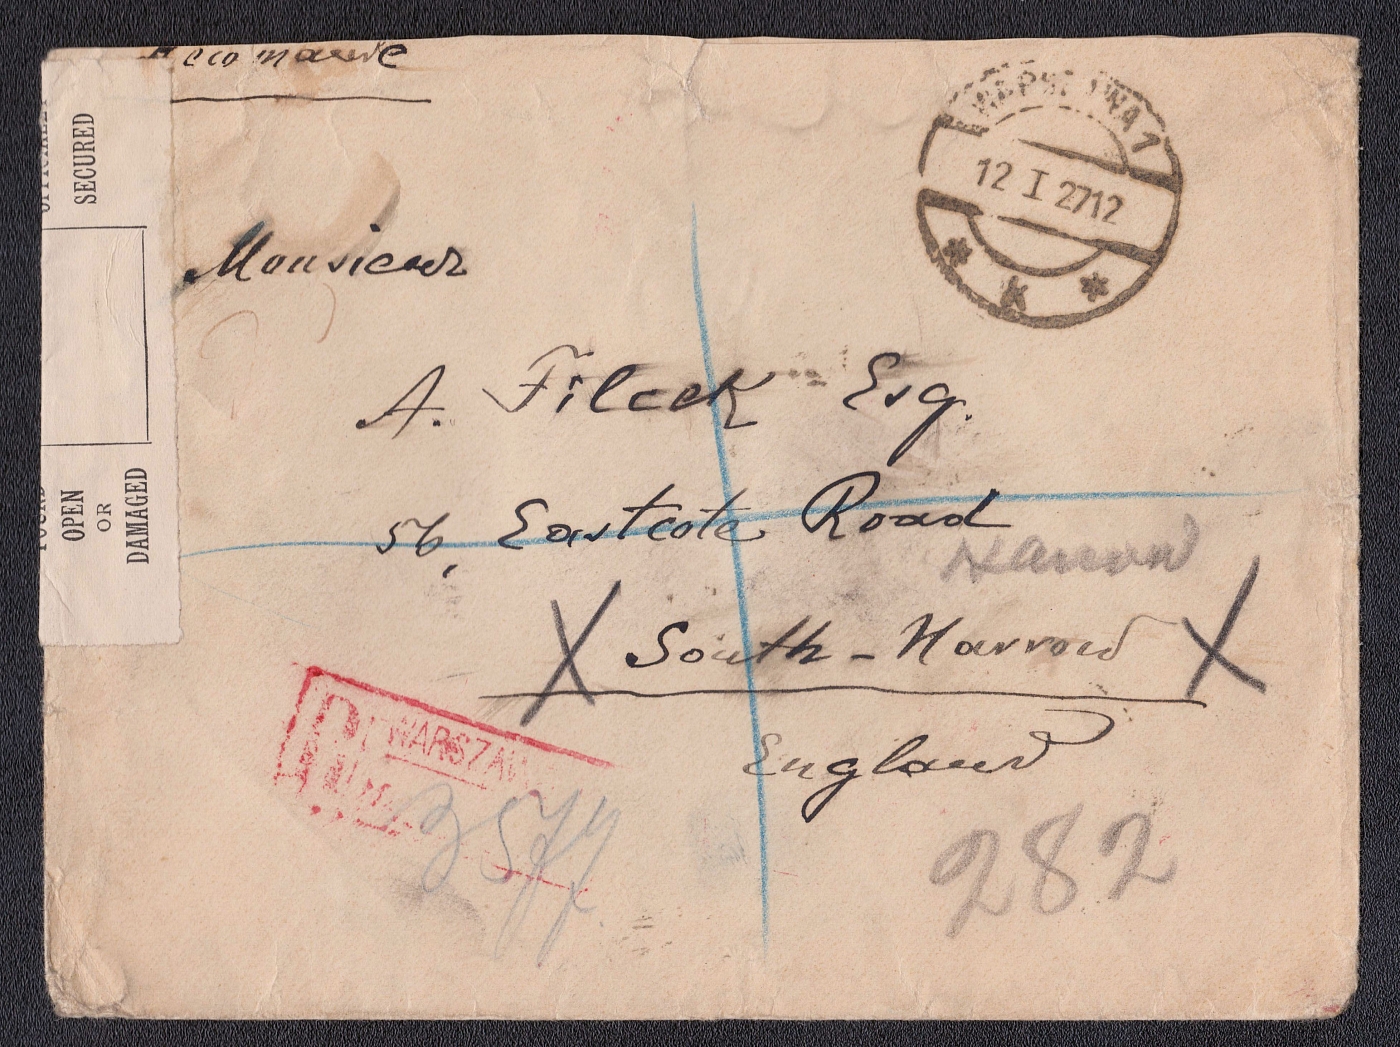 Recomandé
OFFICIALLY
SECURED
WARSZAWA 1
12 I 27 12
* K *
Monsieur
A. Filcek Esq.
FOUND
OPEN
OR
DAMAGED
56, Eastcote Road
Harrow
X South - Harrow X
England
R WARSZAWA
282